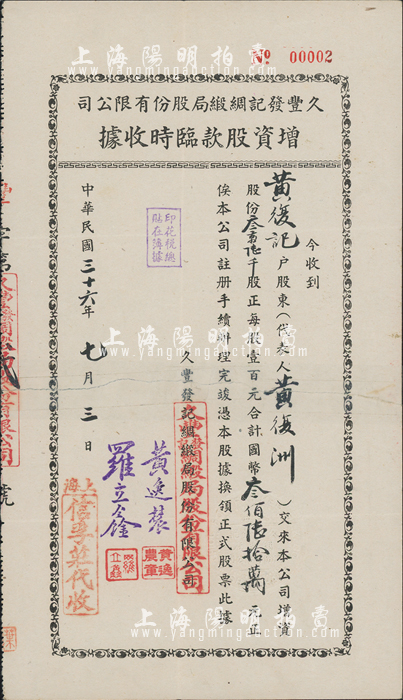 上海陽明拍賣
www.yangmingauction.com
№ 00002
久豐發記綢緞局股份有限公司
增資股款臨時收據
今收到
黃復記戶股東（代表人黃復洲）交來本公司增資
股份叁萬陸千股正每股壹百元合計國幣叁佰陸拾萬元正
俟本公司註册手續辦理完竣憑本股據換領正式股票此據
久豐發記綢緞局股份有限公司
印花稅總
貼在簿據
黃逸農
羅立鑫
上海
信孚莊代收
中華民國三十六年七月三日
上海陽明拍賣
www.yangmingauction.com
上海陽明拍賣
www.yangmingauction.com